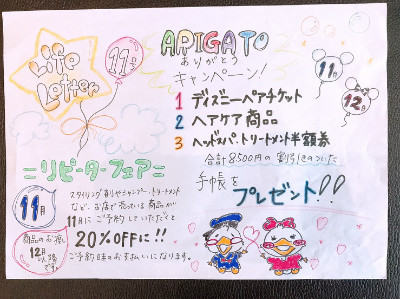 Life
Letter
11月
ARIGATO
ありがとう
キャンペーン!
11月
12月
1 ディズニーペアチケット
2 ヘアケア商品
3 ヘッドスパ・トリートメント半額券
合計8500円の割引きのついた
手帳を
プレゼント!!
=リピーターフェア=
11月
スタイリング剤やシャンプー・トリートメント
など、お店で売っている商品が
11月にご予約していただくと
20%OFFに!!
ご予約時のお支払いになります。
商品のお渡し
12月
以降
です。